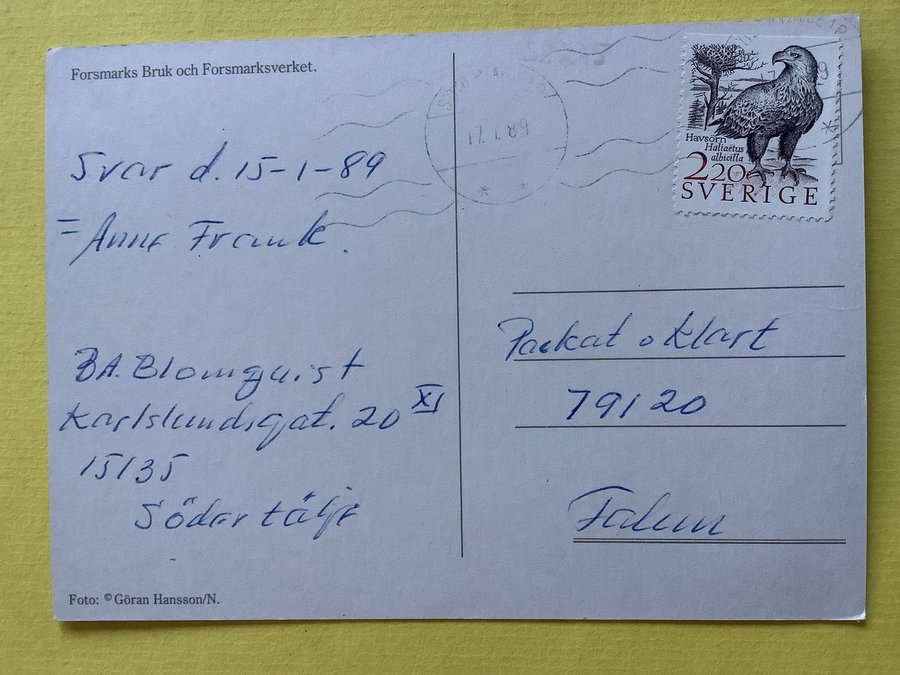 Forsmarks Bruk och Forsmarksverket.
Svar d. 15-1-89
= Anne Frank.
BA. Blomquist
Karlslundsgat. 20 XI
15135
Södertälje
Foto: © Göran Hansson/N.
Havsörn
Haliaetus
albicilla
220
SVERIGE
Packat o Klart
79120
Falun